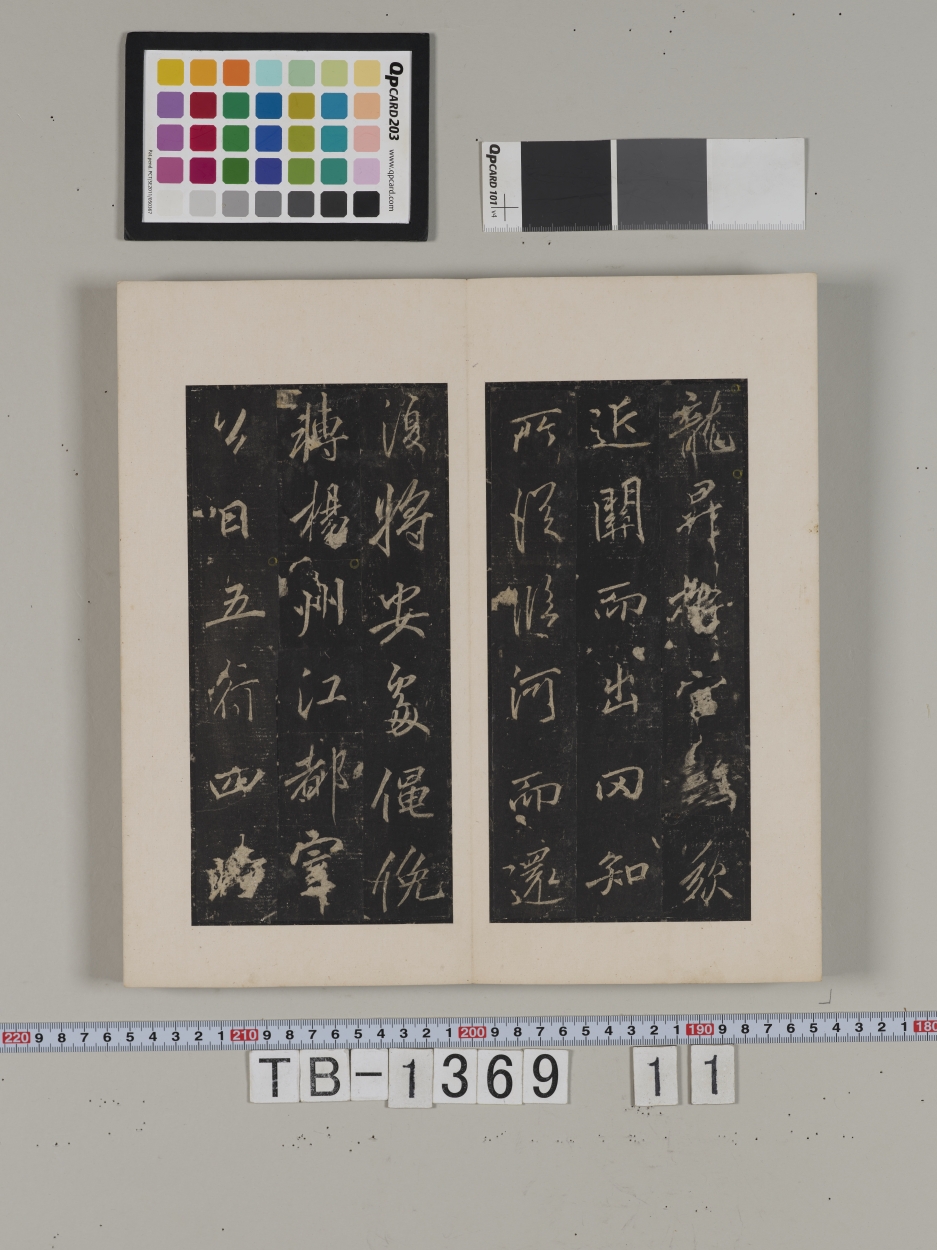 Qp CARD 203
www.qpcard.com
Qp CARD 101 v4
龍昇
近關而出罔知
所從濟河而還
復將安處僶俛
轉楊州江都宰
以曰五行四時
220 9 8 7 6 5 4 3 2 1 210 9 8 7 6 5 4 3 2 1 200 9 8 7 6 5 4 3 2 1 190 9 8 7 6 5 4 3 2 1 180
TB-1369 11